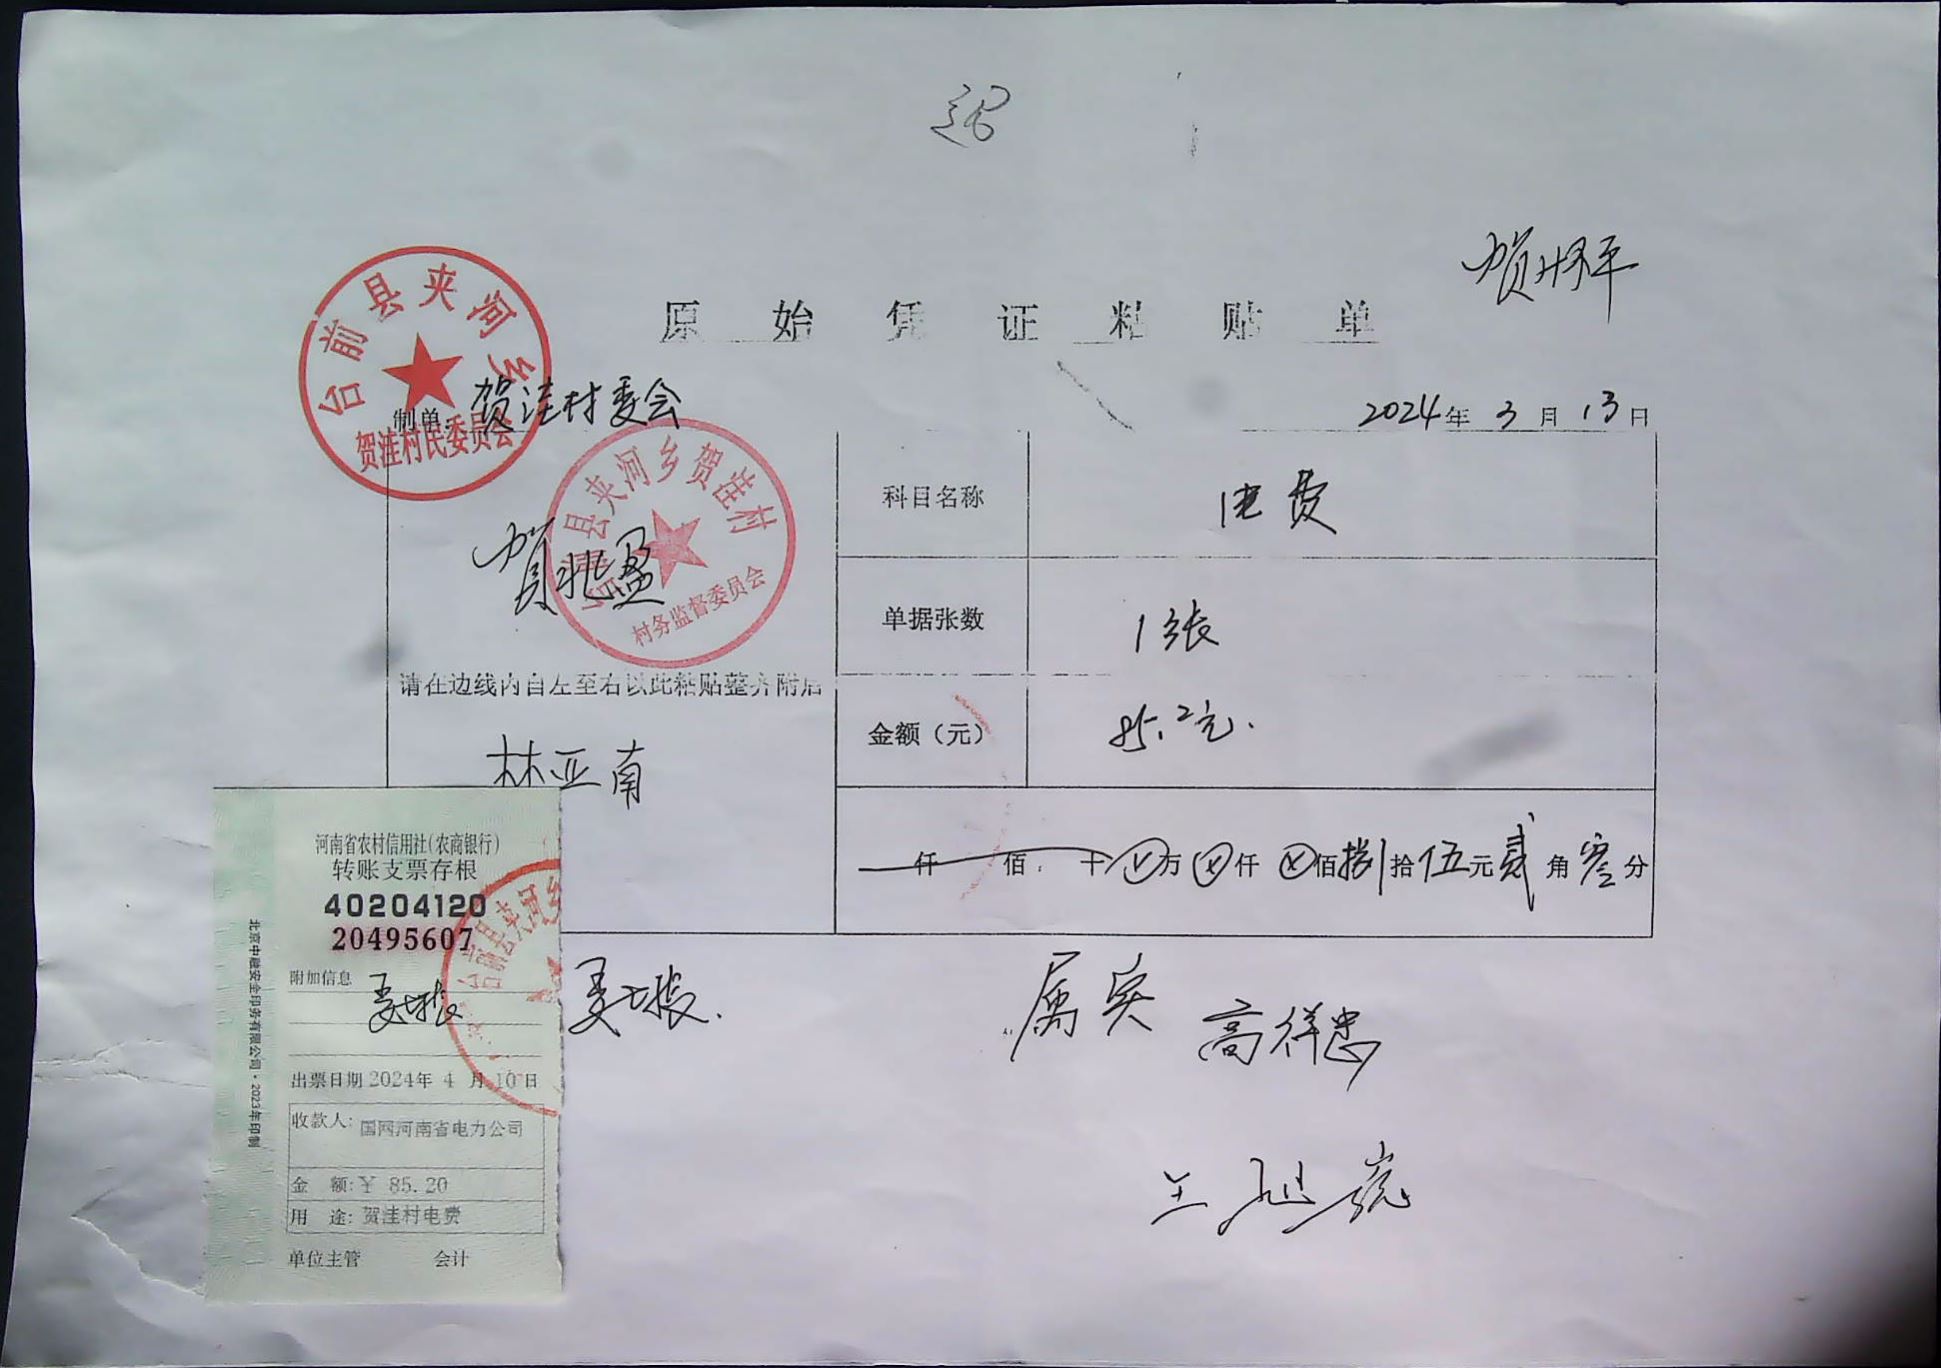 原始凭证粘贴单
台前县夹河乡
贺洼村民委员会
制单：贺洼村委会
2024年3月13日
县夹河乡贺洼村
村务监督委员会
贺兆盈
科目名称 电费
单据张数 1张
请在边线内自左至右以此粘贴整齐附后
金额（元） 85.2元.
林亚南
仟 佰 十ⓧ万ⓧ仟ⓧ佰捌拾伍元贰角零分
河南省农村信用社（农商银行）
转账支票存根
40204120
20495607
附加信息
北京中融安全印务有限公司·2023年印制
台前县夹河乡
属实 高祥忠
出票日期 2024年 4 月 10日
收款人: 国网河南省电力公司
金 额:￥ 85.20
用 途: 贺洼村电费
单位主管 会计